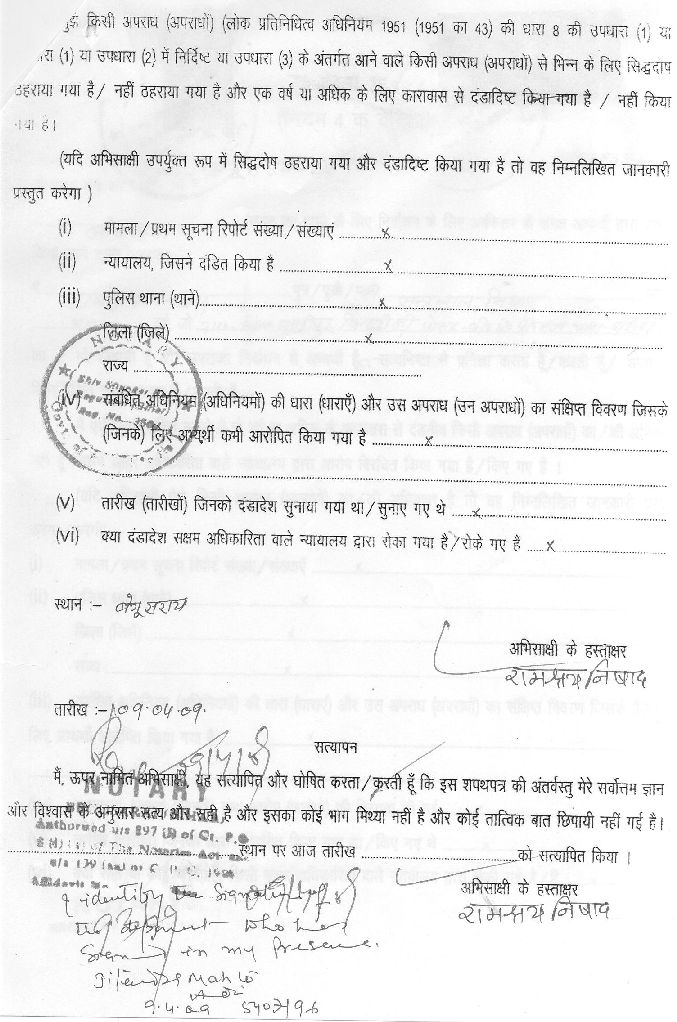 किसी अपराध (अपराधों) (लोक प्रतिनिधित्व अधिनियम 1951 (1951 का 43) की धारा 8 की उपधारा (1) या
(1) या उपधारा (2) में निर्दिष्ट या उपधारा (3) के अंतर्गत आने वाले किसी अपराध (अपराधों) से भिन्न के लिए सिद्धदोष
ठहराया गया है / नहीं ठहराया गया है और एक वर्ष या अधिक के लिए कारावास से दंडादिष्ट किया गया है / नहीं किया
गया है।
(यदि अभिसाक्षी उपर्युक्त रूप में सिद्धदोष ठहराया गया और दंडादिष्ट किया गया है तो वह निम्नलिखित जानकारी
प्रस्तुत करेगा )
(i) मामला / प्रथम सूचना रिपोर्ट संख्या / संख्याएं x
(ii) न्यायालय, जिसने दंडित किया है x
(iii) पुलिस थाना (थाने) x
जिला (जिले) x
राज्य
(iv) संबंधित अधिनियम (अधिनियमों) की धारा (धाराएँ) और उस अपराध (उन अपराधों) का संक्षिप्त विवरण जिसके
(जिनके) लिए अभ्यर्थी कभी आरोपित किया गया है x
(v) तारीख (तारीखों) जिनको दंडादेश सुनाया गया था / सुनाए गए थे x
(vi) क्या दंडादेश सक्षम अधिकारिता वाले न्यायालय द्वारा रोका गया है / रोके गए है x
NOTARY
स्थान :- बेगूसराय
अभिसाक्षी के हस्ताक्षर
रामक्षय निषाद
तारीख :- 09.04.09.
सत्यापन
मैं, ऊपर नामित अभिसाक्षी, यह सत्यापित और घोषित करता / करती हूँ कि इस शपथपत्र की अंतर्वस्तु मेरे सर्वोत्तम ज्ञान
NOTARY
और विश्वास के अनुसार सत्य और सही है और इसका कोई भाग मिथ्या नहीं है और कोई तात्विक बात छिपायी नहीं गई है।
Authorised u/s 297 of Cr. P.C
स्थान पर आज तारीख को सत्यापित किया ।
अभिसाक्षी के हस्ताक्षर
रामक्षय निषाद
I identify the
the deponent who has
signed in my Presence.
Jitendra Mahto
9.4.09